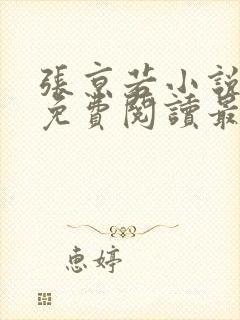 張京若小說
免費閱讀最
惠婷